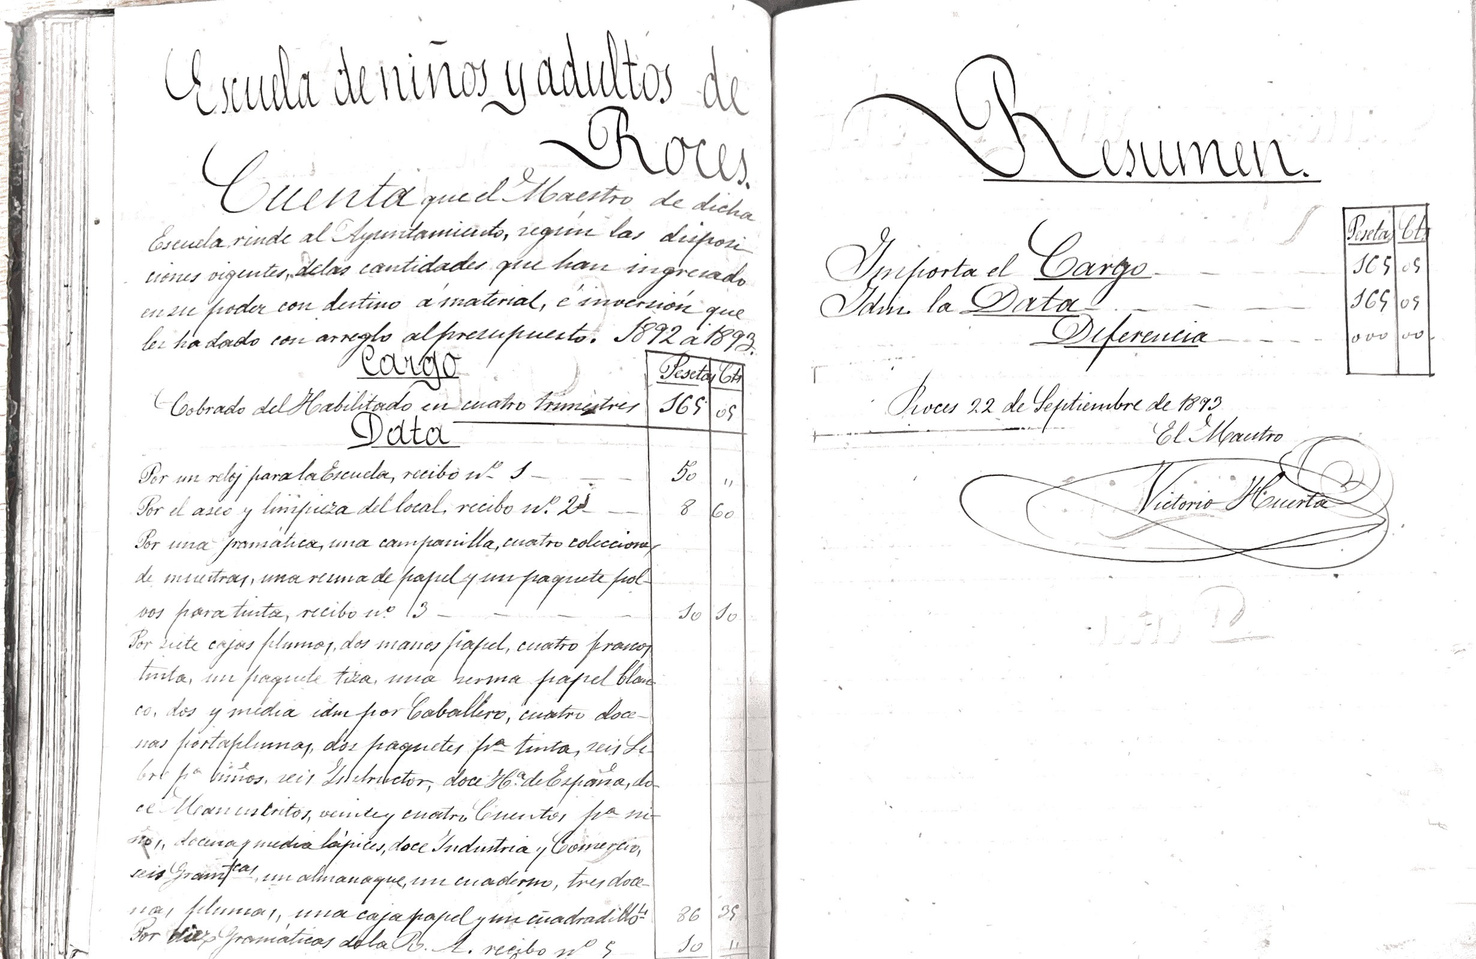 Escuela de niños y adultos de
Roces.
Cuenta que el Maestro de dicha
Escuela rinde al Ayuntamiento, según las disposi
ciones vigentes, de las cantidades que han ingresado
en su poder con destino á material, é inversión que
les ha dado con arreglo al presupuesto. 1892 á 1893.
Cargo
Pesetas Cts
Cobrado del Habilitado en cuatro trimestres 165 05
Data
Por un reloj para la Escuela, recibo nº 1 50 "
Por el aseo y limpieza del local, recibo nº 2 8 60
Por una gramática, una campanilla, cuatro colecciones
de muestras, una resma de papel y un paquete pol-
vos para tinta, recibo nº 3 10 10
Por siete cajas plumas, dos manos papel, cuatro frascos
tinta, un paquete tiza, una resma papel blan-
co, dos y media idm por Caballero, cuatro doce-
nas portaplumas, dos paquetes pª tinta, seis Li-
bro pª niños, seis Instructor, doce Hª de España, do-
ce Manuscritos, veinte y cuatro Cuentos pª ni-
ños, docena y media lápices, doce Industria y Comercio,
seis Gramtcas, un almanaque, un cuaderno, tres doce-
nas plumas, una caja papel y un cuadradillo 86 35
Por diez Gramáticas de la R. A. recibo nº 5 10 "
Resumen.
Pesetas Cts
Importa el Cargo 165 05
Idm. la Data 165 05
Diferencia 000 00
Roces 22 de Septiembre de 1893
El Maestro
Victorio Huerta